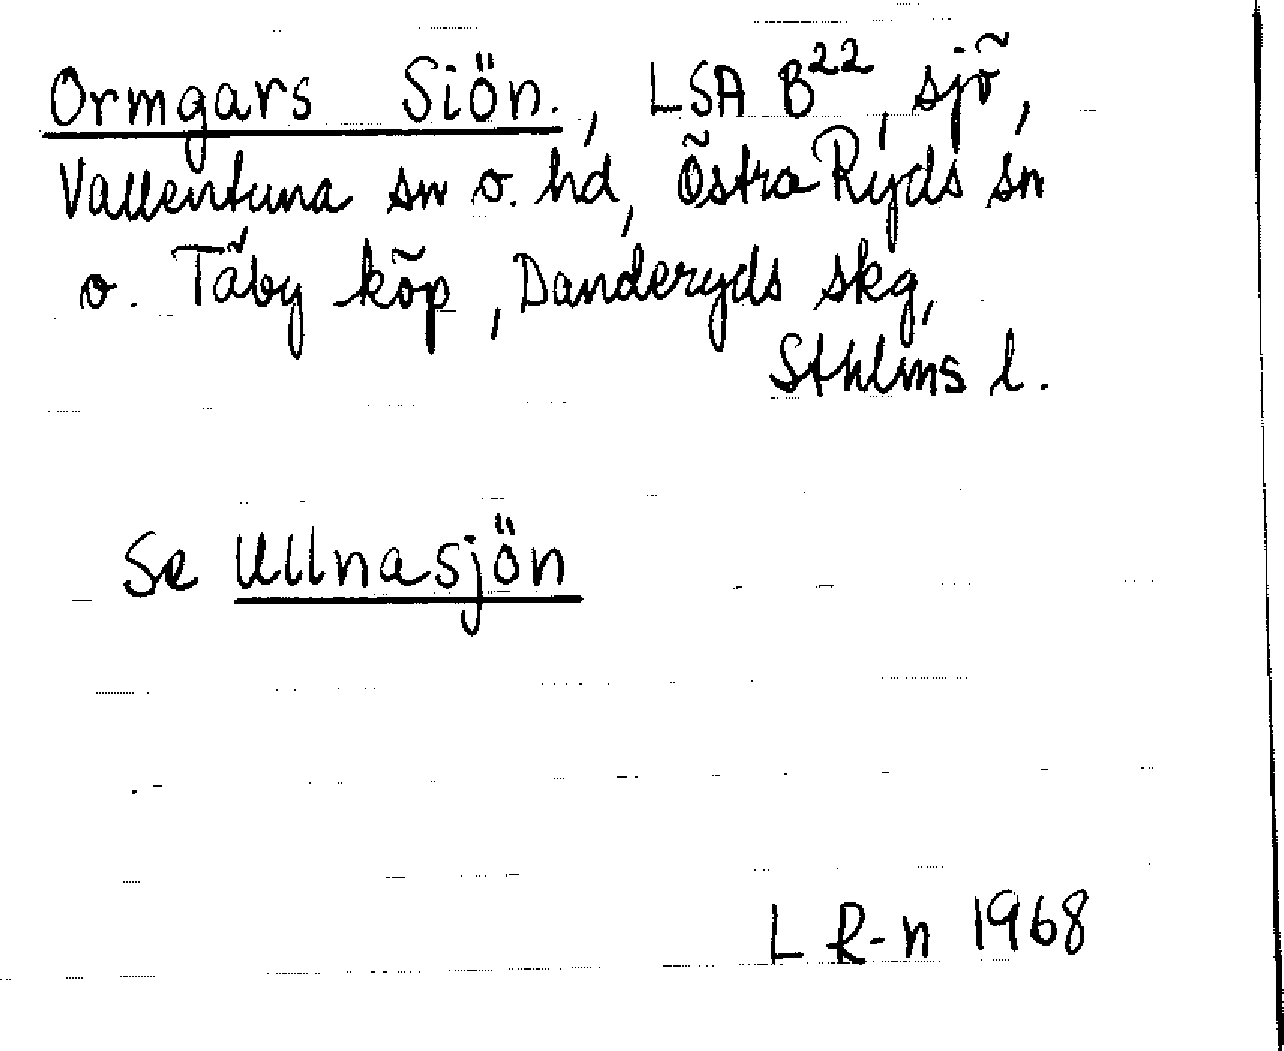 Ormgars Siön., LSA B²², sjö,
Vallentuna sn o. hd, Östra Ryds sn
o. Täby köp, Danderyds skg,
Sthlms l.
Se Ullnasjön
L R-n 1968